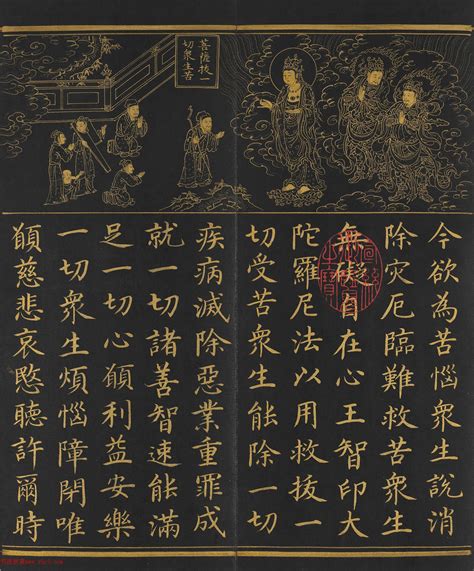 菩薩拔一
切衆生苦
今欲為苦惱衆生說消
除灾厄臨難救苦衆生
無礙自在心王智印大
陀羅尼法以用救拔一
切受苦衆生能除一切
疾病滅除惡業重罪成
就一切諸善智速能滿
足一切心願利益安樂
一切衆生煩惱障閉唯
願慈悲哀愍聽許爾時